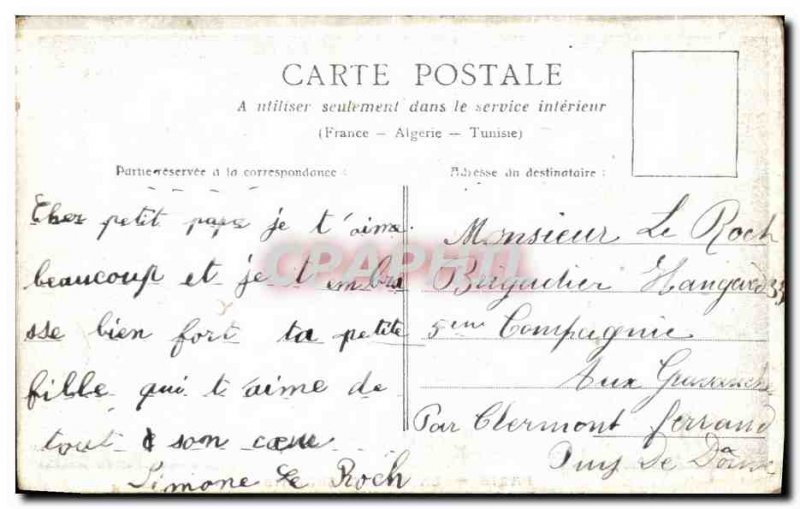 CARTE POSTALE
A utiliser seulement dans le service intérieur
(France — Algerie — Tunisie)
Partie réservée à la correspondance :
Adresse du destinataire :
Cher petit papa je t'aime
beaucoup et je t'embra
sse bien fort ta petite
fille qui t'aime de
tout son cœur
Simone Le Roch
Monsieur Le Roch
Brigadier Hangard 33
5em Compagnie
Aux
Par Clermont ferrand
Puy De Dôme
CPAPHIL